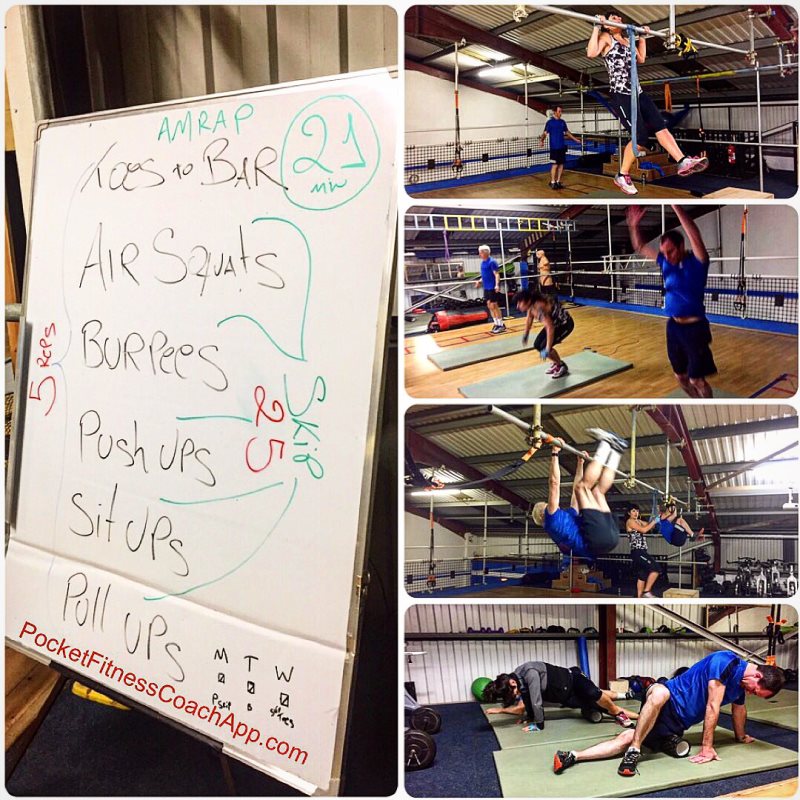 AMRAP
21
MIN
Toes to BAR
AIR Squats
BURPees
Push ups
Sit UPs
Pull UPs
5 REPS
SKIP
25
M T W
PocketFitnessCoachApp.com